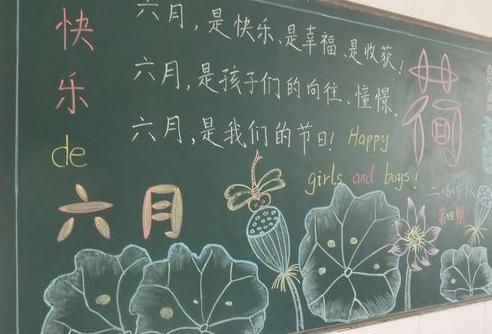 快乐
de
六月
六月,是快乐、是幸福、是收获!
六月,是孩子们的向往、憧憬.
六月,是我们的节日! Happy
girls and boys!
荷
第四期